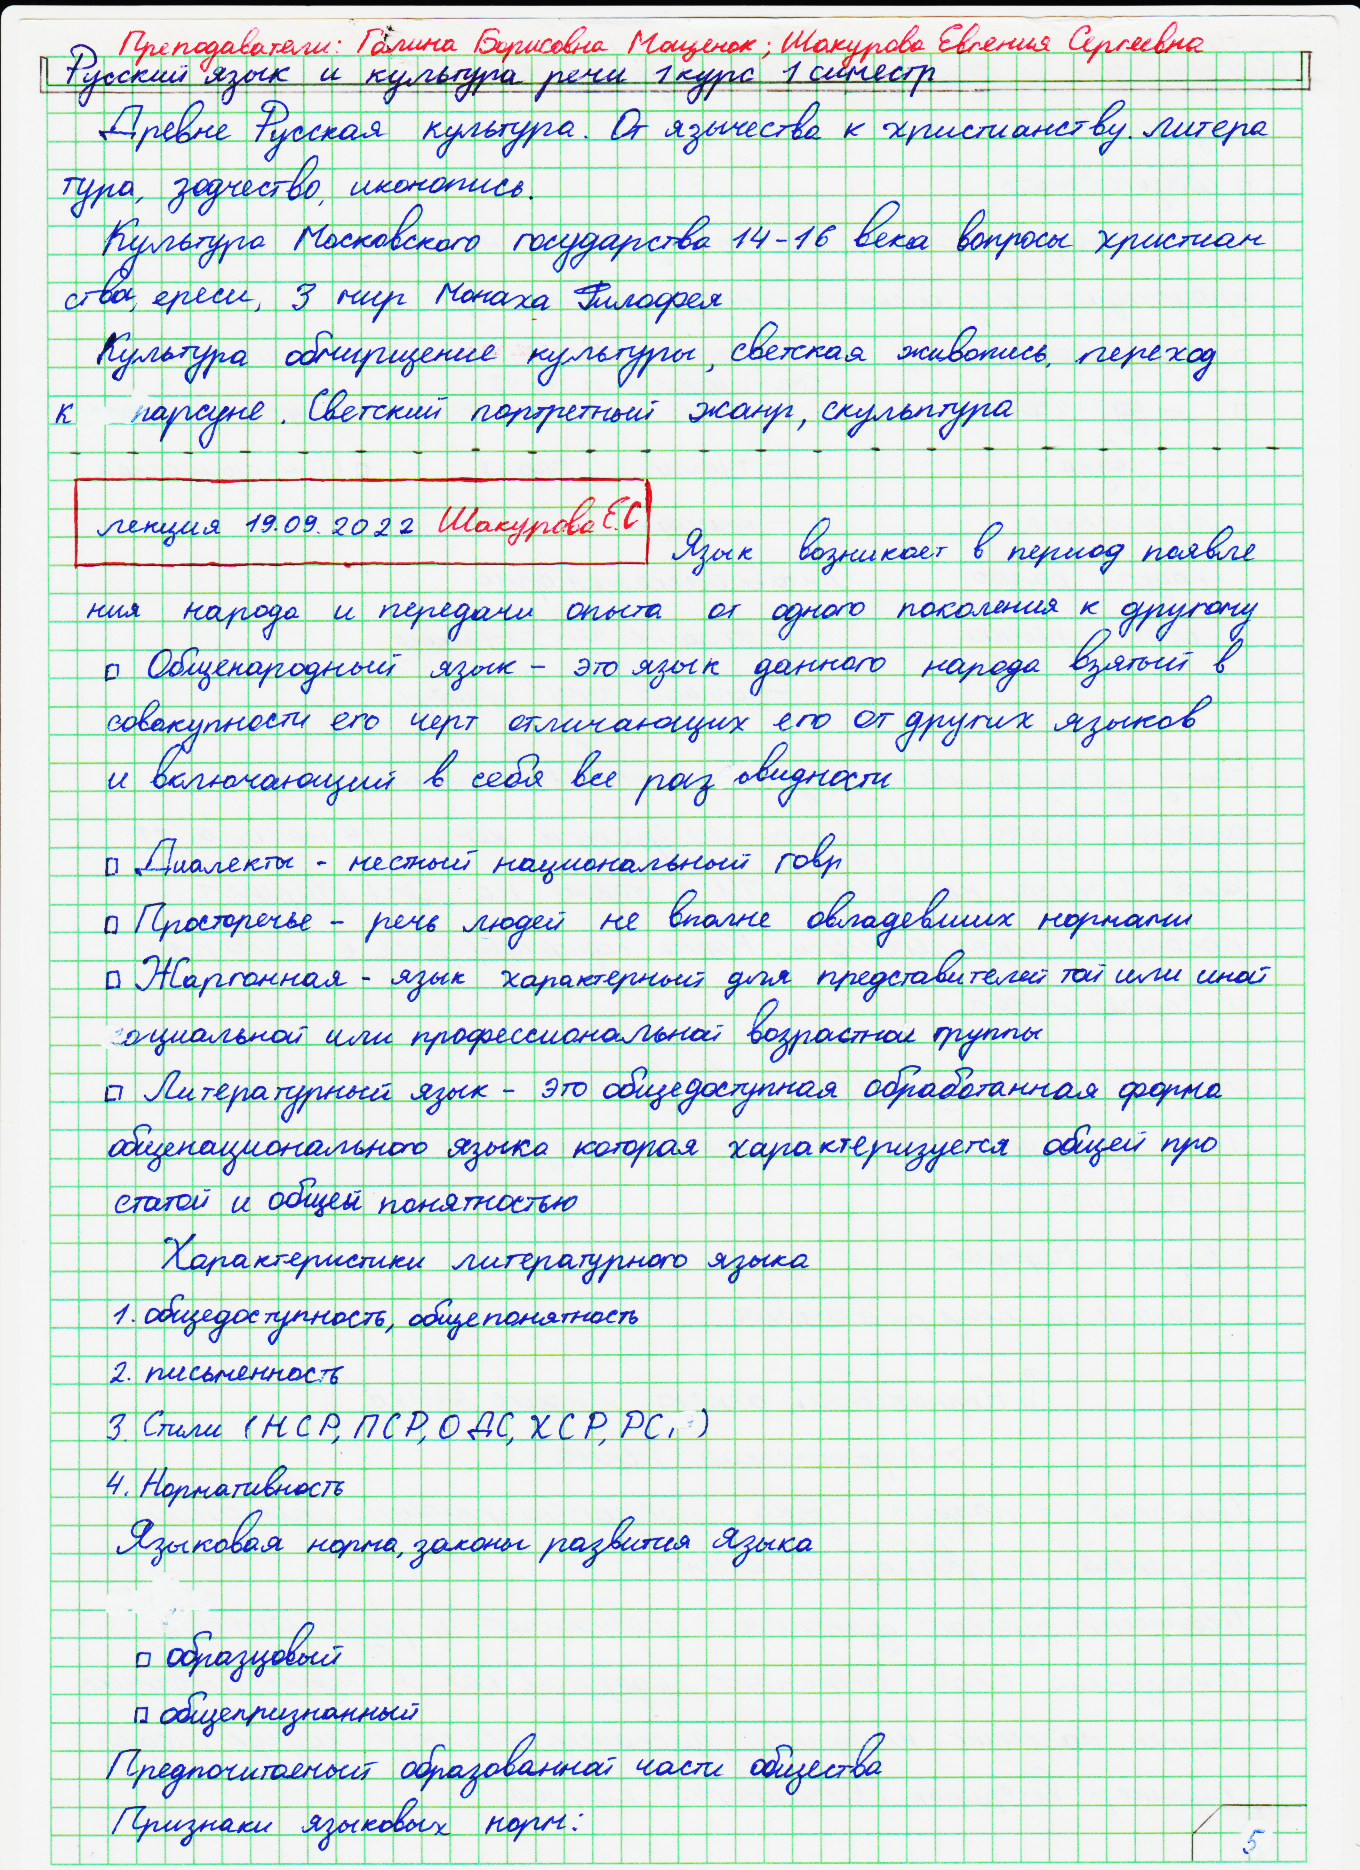 Преподаватели: Галина Борисовна Мощенок; Шакурова Евгения Сергеевна
Русский язык и культура речи 1 курс 1 симестр
Древне Русская культура. От язычества к христианству. Литера
тура, зодчество, иконопись.
Культура Московского государства 14-16 века вопросы христиан
ства, ереси, 3 мир Монаха Филофея
Культура обмирщение культуры, светская живопись, переход
к парсуне. Светский портретный жанр, скульптура
лекция 19.09.2022 Шакурова Е.С
Язык возникает в период появле
ния народа и передачи опыта от одного поколения к другому
Общенародный язык - это язык данного народа взятый в
совокупности его черт отличающих его от других языков
и включающий в себя все раз овидности
Диалекты - местный национальный говр
Просторечье - речь людей не вполне овладевших нормами
Жаргонная - язык характерный для представителей той или иной
социальной или профессиональной возрастной группы
Литературный язык - это общедоступная обработанная форма
общенационального языка которая характеризуется общей про
статой и общей понятностью
Характеристики литературного языка
1. общедоступность, общепонятность
2. письменность
3. Стили (НСР, ПСР, ОДС, ХСР, РС, )
4. Нормативность
Языковая норма, законы развития языка
образцовый
общепризнанный
Предпочитаемый образованной части общества
Признаки языковых норм:
5